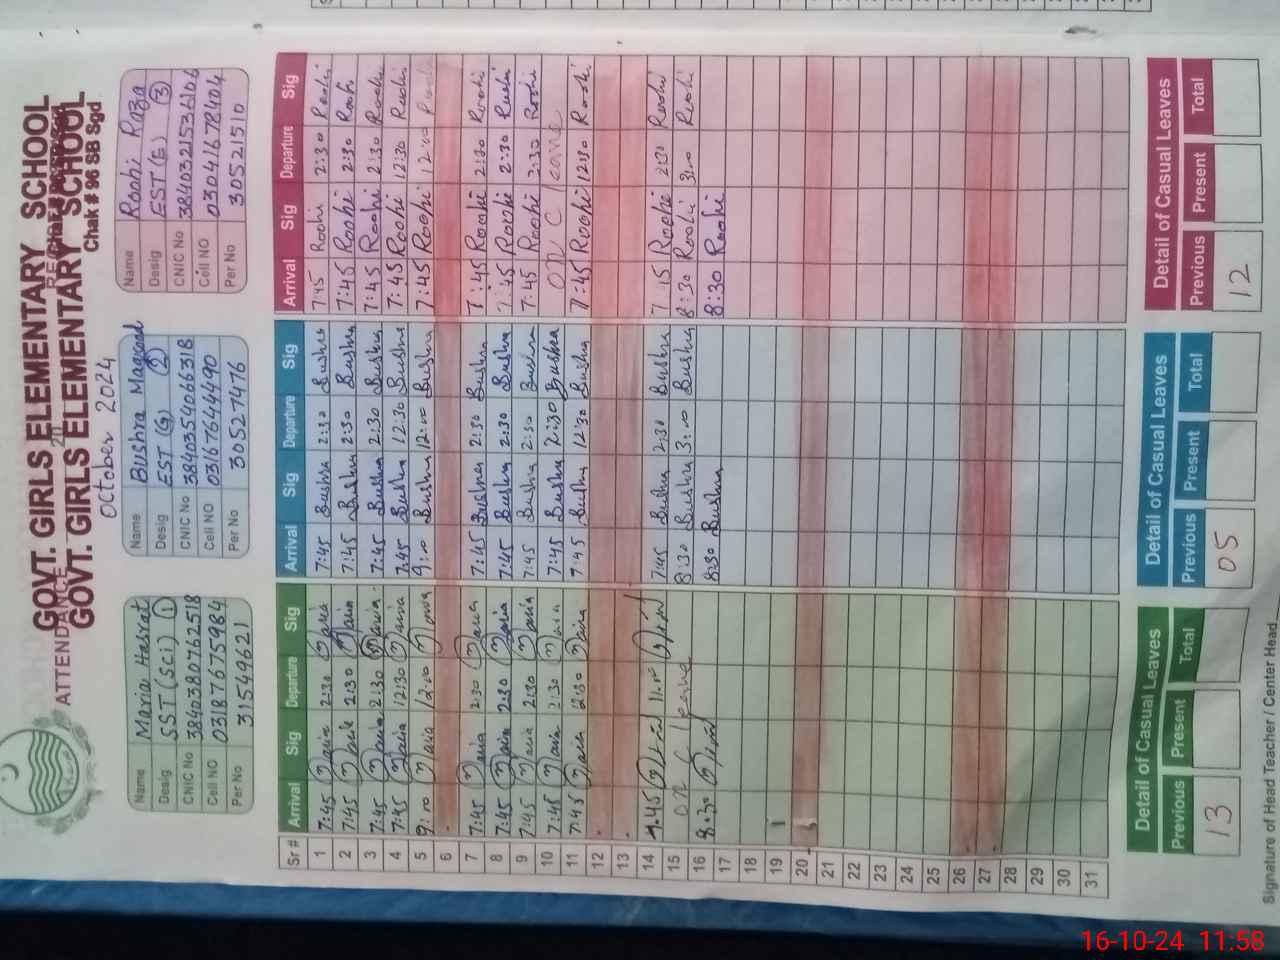 GOVT. GIRLS ELEMENTARY SCHOOL
ATTENDANCE
GOVT. GIRLS ELEMENTARY SCHOOL
Chak # 96 SB Sgd
October 2024
Name Maria Hasrat
Desig SST (Sci) 1
CNIC No 3840380762518
Cell NO 03187675984
Per No 31549621
Name Bushra Maqsood
Desig EST (G) 2
CNIC No 3840354066318
Cell NO 03167644490
Per No 30527476
Name Roohi Raza
Desig EST (E) 3
CNIC No 3840321536106
Cell NO 03041678404
Per No 30521510
Sr # Arrival Sig Departure Sig Arrival Sig Departure Sig Arrival Sig Departure Sig
1 7:45 Maria 2:30 Maria 7:45 Bushra 2:30 Bushra 7:45 Roohi 2:30 Roohi
2 7:45 Maria 2:30 Maria 7:45 Bushra 2:30 Bushra 7:45 Roohi 2:30 Roohi
3 7:45 Maria 2:30 Maria 7:45 Bushra 2:30 Bushra 7:45 Roohi 2:30 Roohi
4 7:45 Maria 12:30 Maria 7:45 Bushra 12:30 Bushra 7:45 Roohi 12:30 Roohi
5 9:00 Maria 12:00 Maria 9:00 Bushra 12:00 Bushra 7:45 Roohi 12:00 Roohi
6
7 7:45 Maria 2:30 Maria 7:45 Bushra 2:30 Bushra 7:45 Roohi 2:30 Roohi
8 7:45 Maria 2:30 Maria 7:45 Bushra 2:30 Bushra 7:45 Roohi 2:30 Roohi
9 7:45 Maria 2:30 Maria 7:45 Bushra 2:30 Bushra 7:45 Roohi 2:30 Roohi
10 7:45 Maria 2:30 Maria 7:45 Bushra 2:30 Bushra on C leave
11 7:45 Maria 12:30 Maria 7:45 Bushra 12:30 Bushra 7:45 Roohi 12:30 Roohi
12
13
14 7:45 11:00 7:45 Bushra 2:30 Bushra 7:45 Roohi 2:30 Roohi
15 on C leave 8:30 Bushra 3:00 Bushra 8:30 Roohi 3:00 Roohi
16 8:30 8:30 Bushra 8:30 Roohi
17
18
19
20
21
22
23
24
25
26
27
28
29
30
31
Detail of Casual Leaves
Previous Present Total
13
Detail of Casual Leaves
Previous Present Total
05
Detail of Casual Leaves
Previous Present Total
12
Signature of Head Teacher / Center Head
16-10-24 11:58